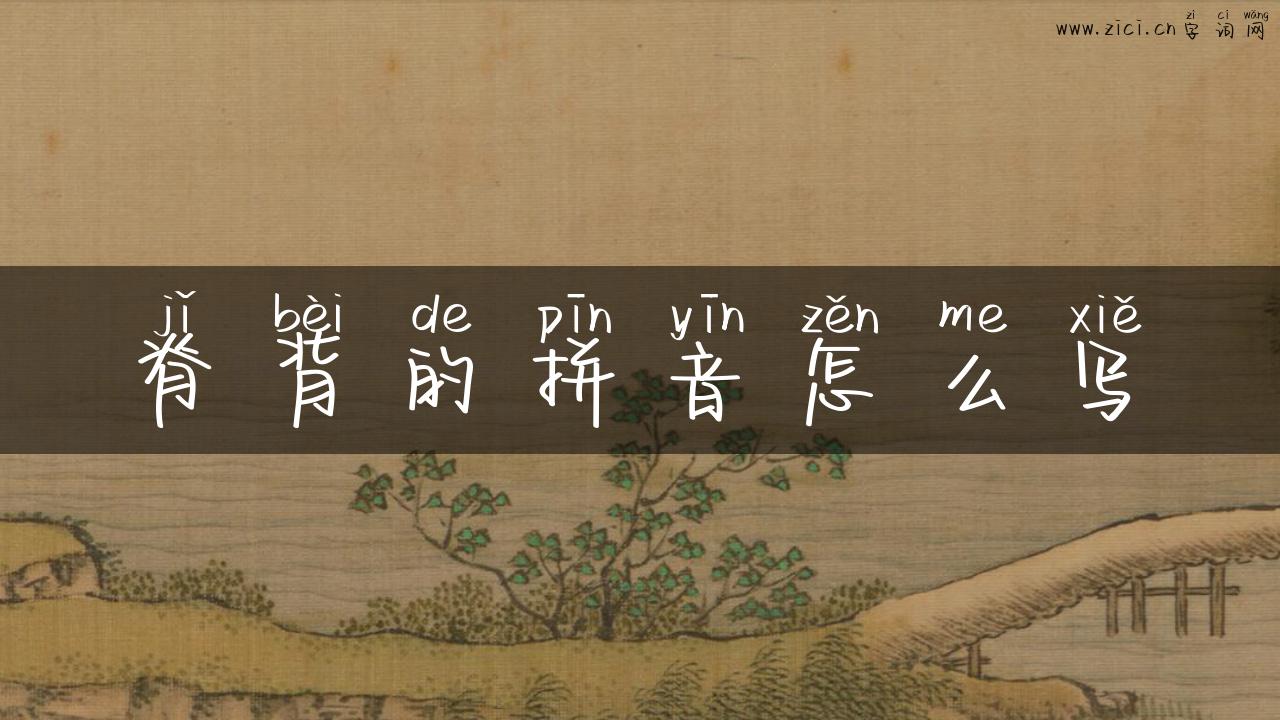 zì cí wǎng
www.zici.cn 字词网
jǐ bèi de pīn yīn zěn me xiě
脊背的拼音怎么写